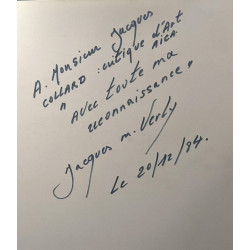 A. Monsieur Jacques
COLLARD : critique d'Art
AICA.
" avec toute ma
reconnaissance"
Jacques M. Verly
Le 20/12/94.